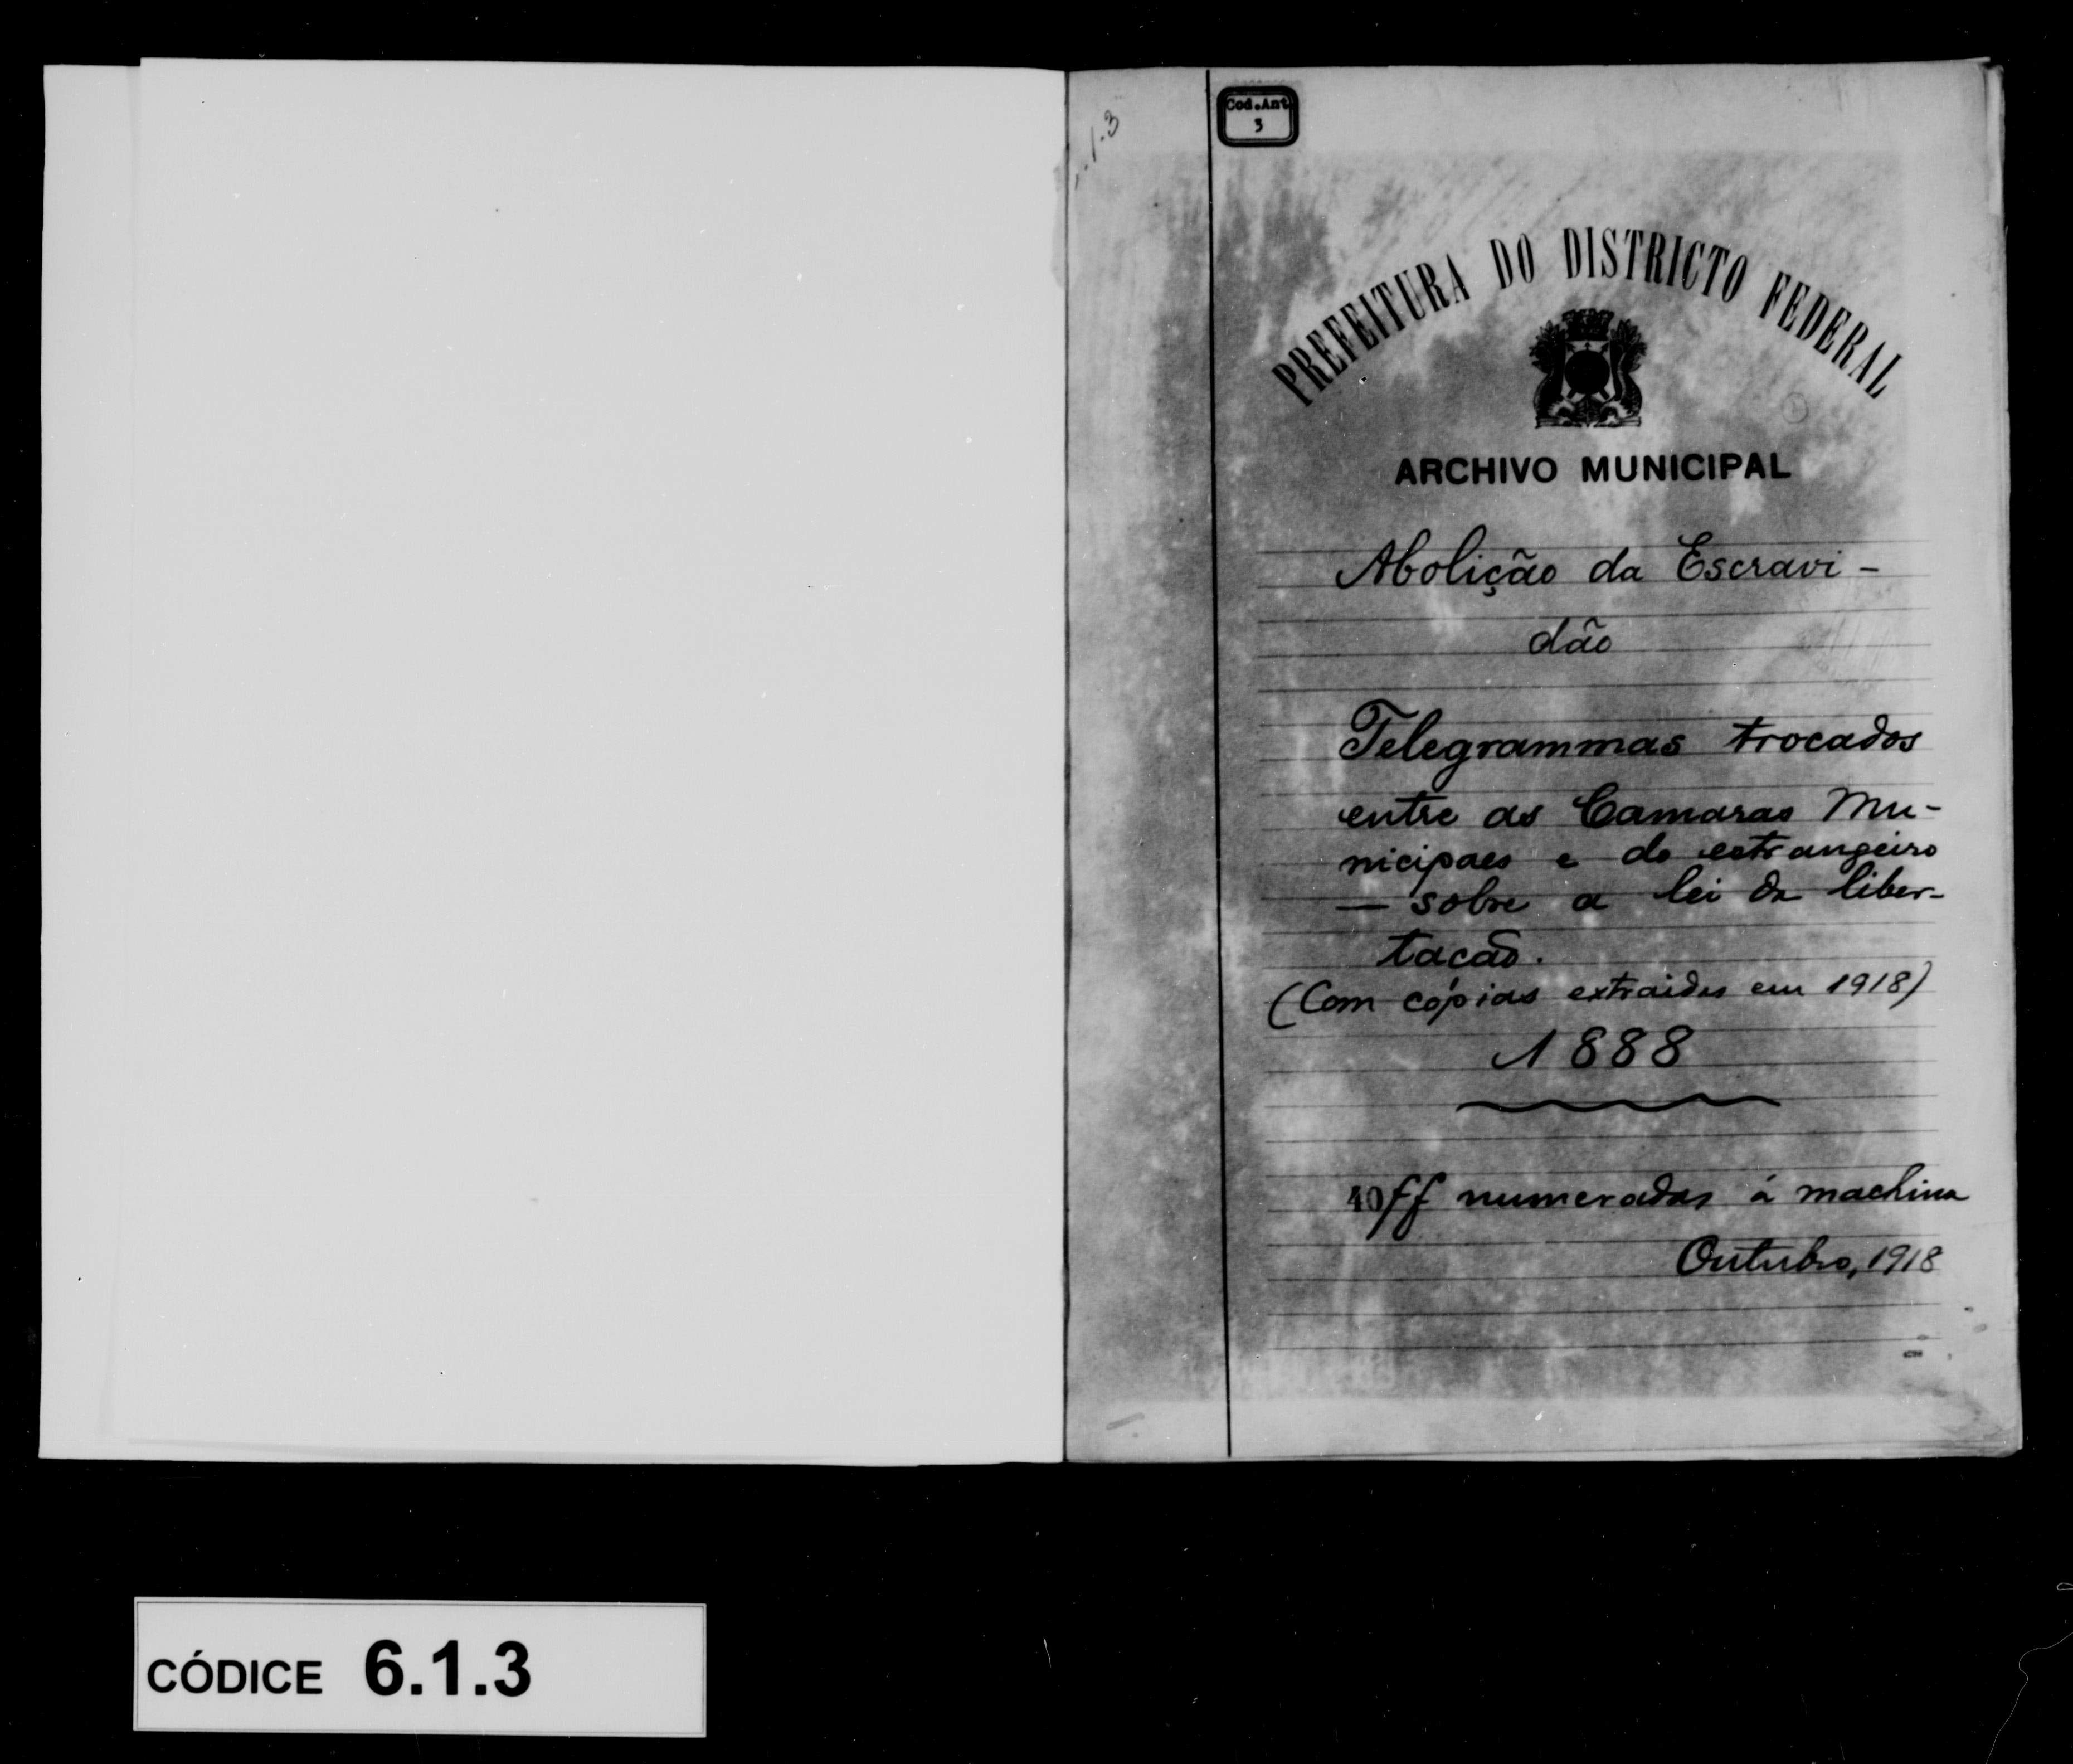 Cod.Ant
3
.1.3
PREFEITURA DO DISTRICTO FEDERAL
ARCHIVO MUNICIPAL
Abolição da Escravi-
dão
Telegrammas trocados
entre as Camaras Mu-
nicipaes e do estrangeiro
— sobre a lei da liber-
tacão.
(Com cópias extraidas em 1918)
1888
40 ff numeradas á machina
Outubro, 1918
CÓDICE 6.1.3